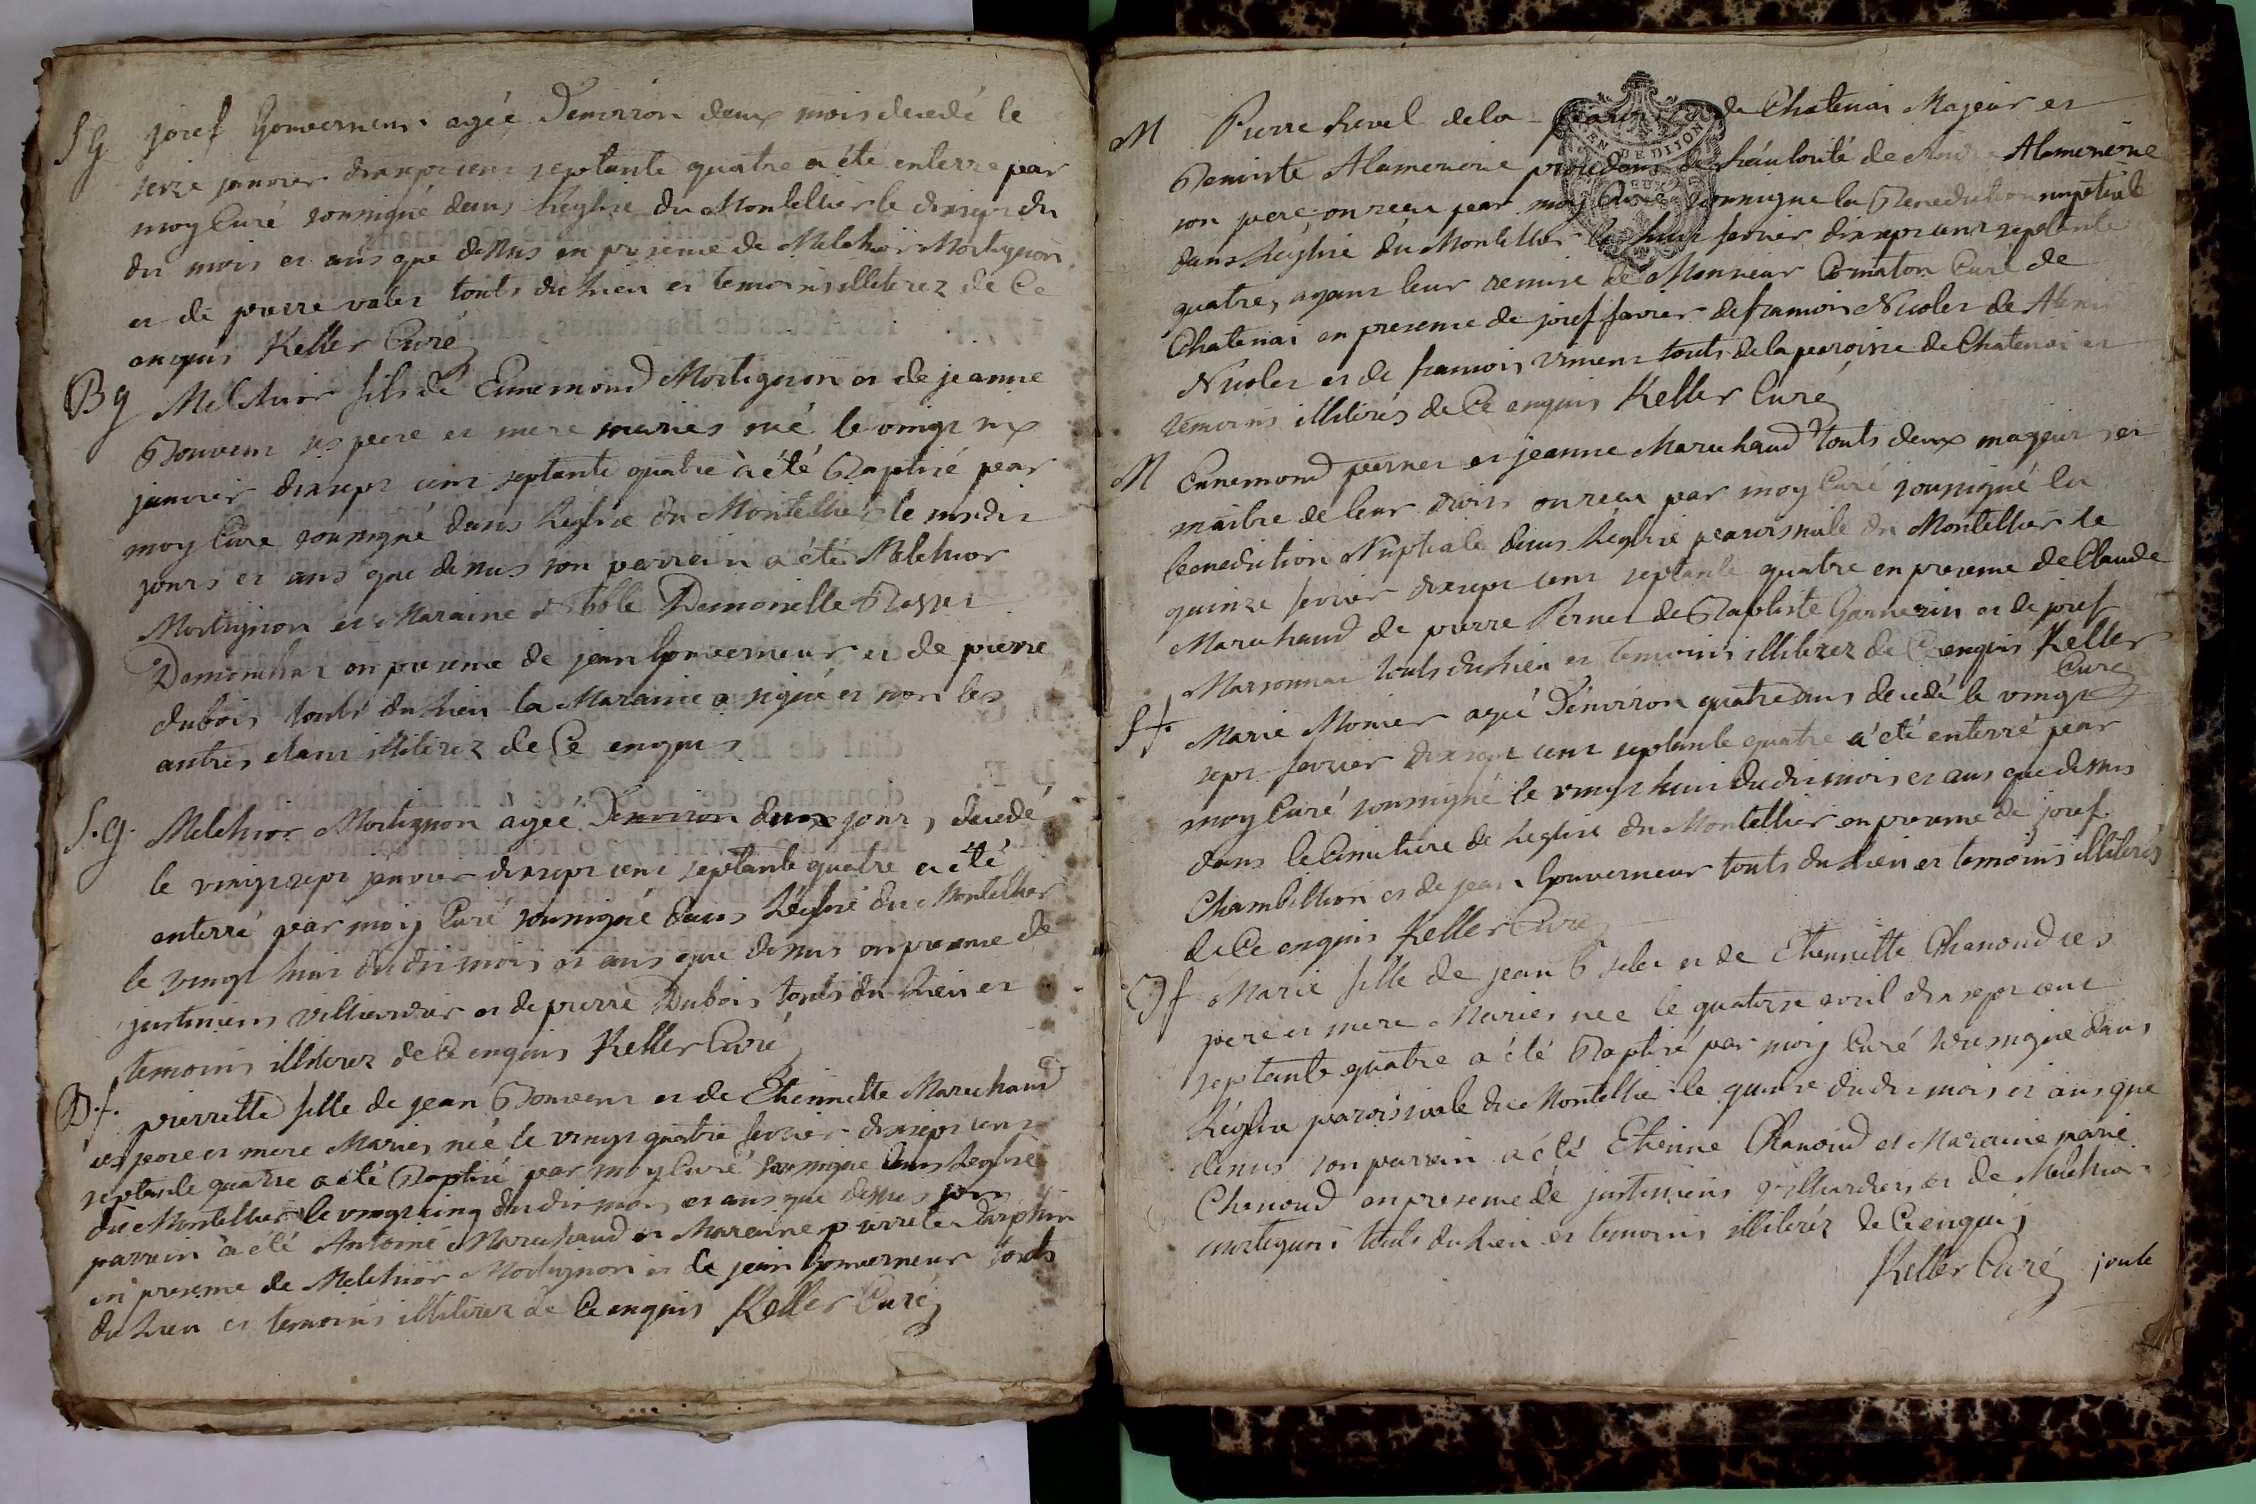 S G josef Gouverneur agée D'environ deux mois decedé le
seize janvier dixsept cent septante quatre a été enterre par
moy Curé sousigné dans Leglise du Montellier le dixsept du
du mois et ans que dessus en presence de Melchior Mortignon
et de pierre valet touts du Lieu et temoins illiterez de Ce
enquis Keller Curé
B g Melchior fils de Ennemond Mortignon et de jeanne
Bouvent ses pere et mere maries né le vingt six
janvier dixsept cent septante quatre à été Baptisé par
moy Curé sousigné dans Leglise du Montellier le
jours et ans que dessus son parrein a été Melchior
Mortignon et Maraine Noble Demoiselle
en presence de jean Gouverneur et de pierre
dubois touts du Lieu la Maraine a signé et non les
autres etant illiterez de Ce enquis
S. g. Melchior Mortignon agée D'environ deux jours decedé
le vingt sept janvier dixsept cent septante quatre a été
enterré par moy Curé sousigné dans Léglise du Montellier
le vingt huit dudit mois et ans que dessus en presence de
justinien villiardier et de pierre Dubois touts du Lieu et
temoins illiterez de Ce enquis Keller Curé
B. f. pierrette fille de jean Bouvent et de Etiennette Marechand
ses pere et mere Maries née le vingt quatre fevrier dixsept cent
septante quatre a été Baptisé par moy Curé sousigne dans Leglise
du Montellier le vingt cinq dudit mois et ans que dessus son
parrein à été Antoine Marechand et Maraine pierrette
en presence de Melchior Mortignon et de jean Gouverneur touts
du Lieu et temoins illiterez de Ce enquis Keller Curé
M Pierre Revel de la paroisse de Chatenai Majeur et
Benoiste Alamercerie de Lautorité de Alamercerie
son pere on recu par moy Curé sousigne la Benediction nuptiale
dans Leglise du Montellier le huit fevrier dixsept cent septante
quatre, ayant leur remise de Monsieur Curé de
Chatenai en presence de josef favier de francois Nicolet de
Nicolet et de francois vincent touts de la paroisse de Chatenai et
temoins illiterés de Ce enquis Keller Curé
M Ennemond pernet et jeanne Marechand touts deux mageur et
maitre de leur droits on recu par moy Curé sousigné la
benediction Nuptiale dans Leglise paroissiale du Montellier le
quinze fevrier dixsept cent septante quatre en presence de Claude
Marechand de pierre Pernet de Baptiste Garnerin et de josef
Marsonnat touts du Lieu et temoins illiterez de Ce enquis Keller
Curé
S f. Marie Monier agée D'environ quatre ans decedé le vingt
sept fevrier dixsept cent septante quatre a été enterré par
moy Curé sousigné le vingt huit dudit mois et ans que dessus
dans le Cimitiere de Leglise du Montellier en presence de josef
Chambillion et de jean Gouverneur touts du Lieu et temoins illiterés
de Ce enquis Keller Curé
B f Marie fille de jean et de Etiennette Chanoud ses
pere et mere Maries nee le quatorze avril dixsept cent
septante quatre a été Baptisé par moy Curé sousigne dans
Léglise paroissiale du Montellie le quinze dudit mois et ans que
dessus son parrein a été Etienne Chanoud et Maraine marie
Chanoud en presence de justinien villiardier et de Melchior
mortignon touts du Lieu et temoins illiteréz de Ce enquis
Keller Curé